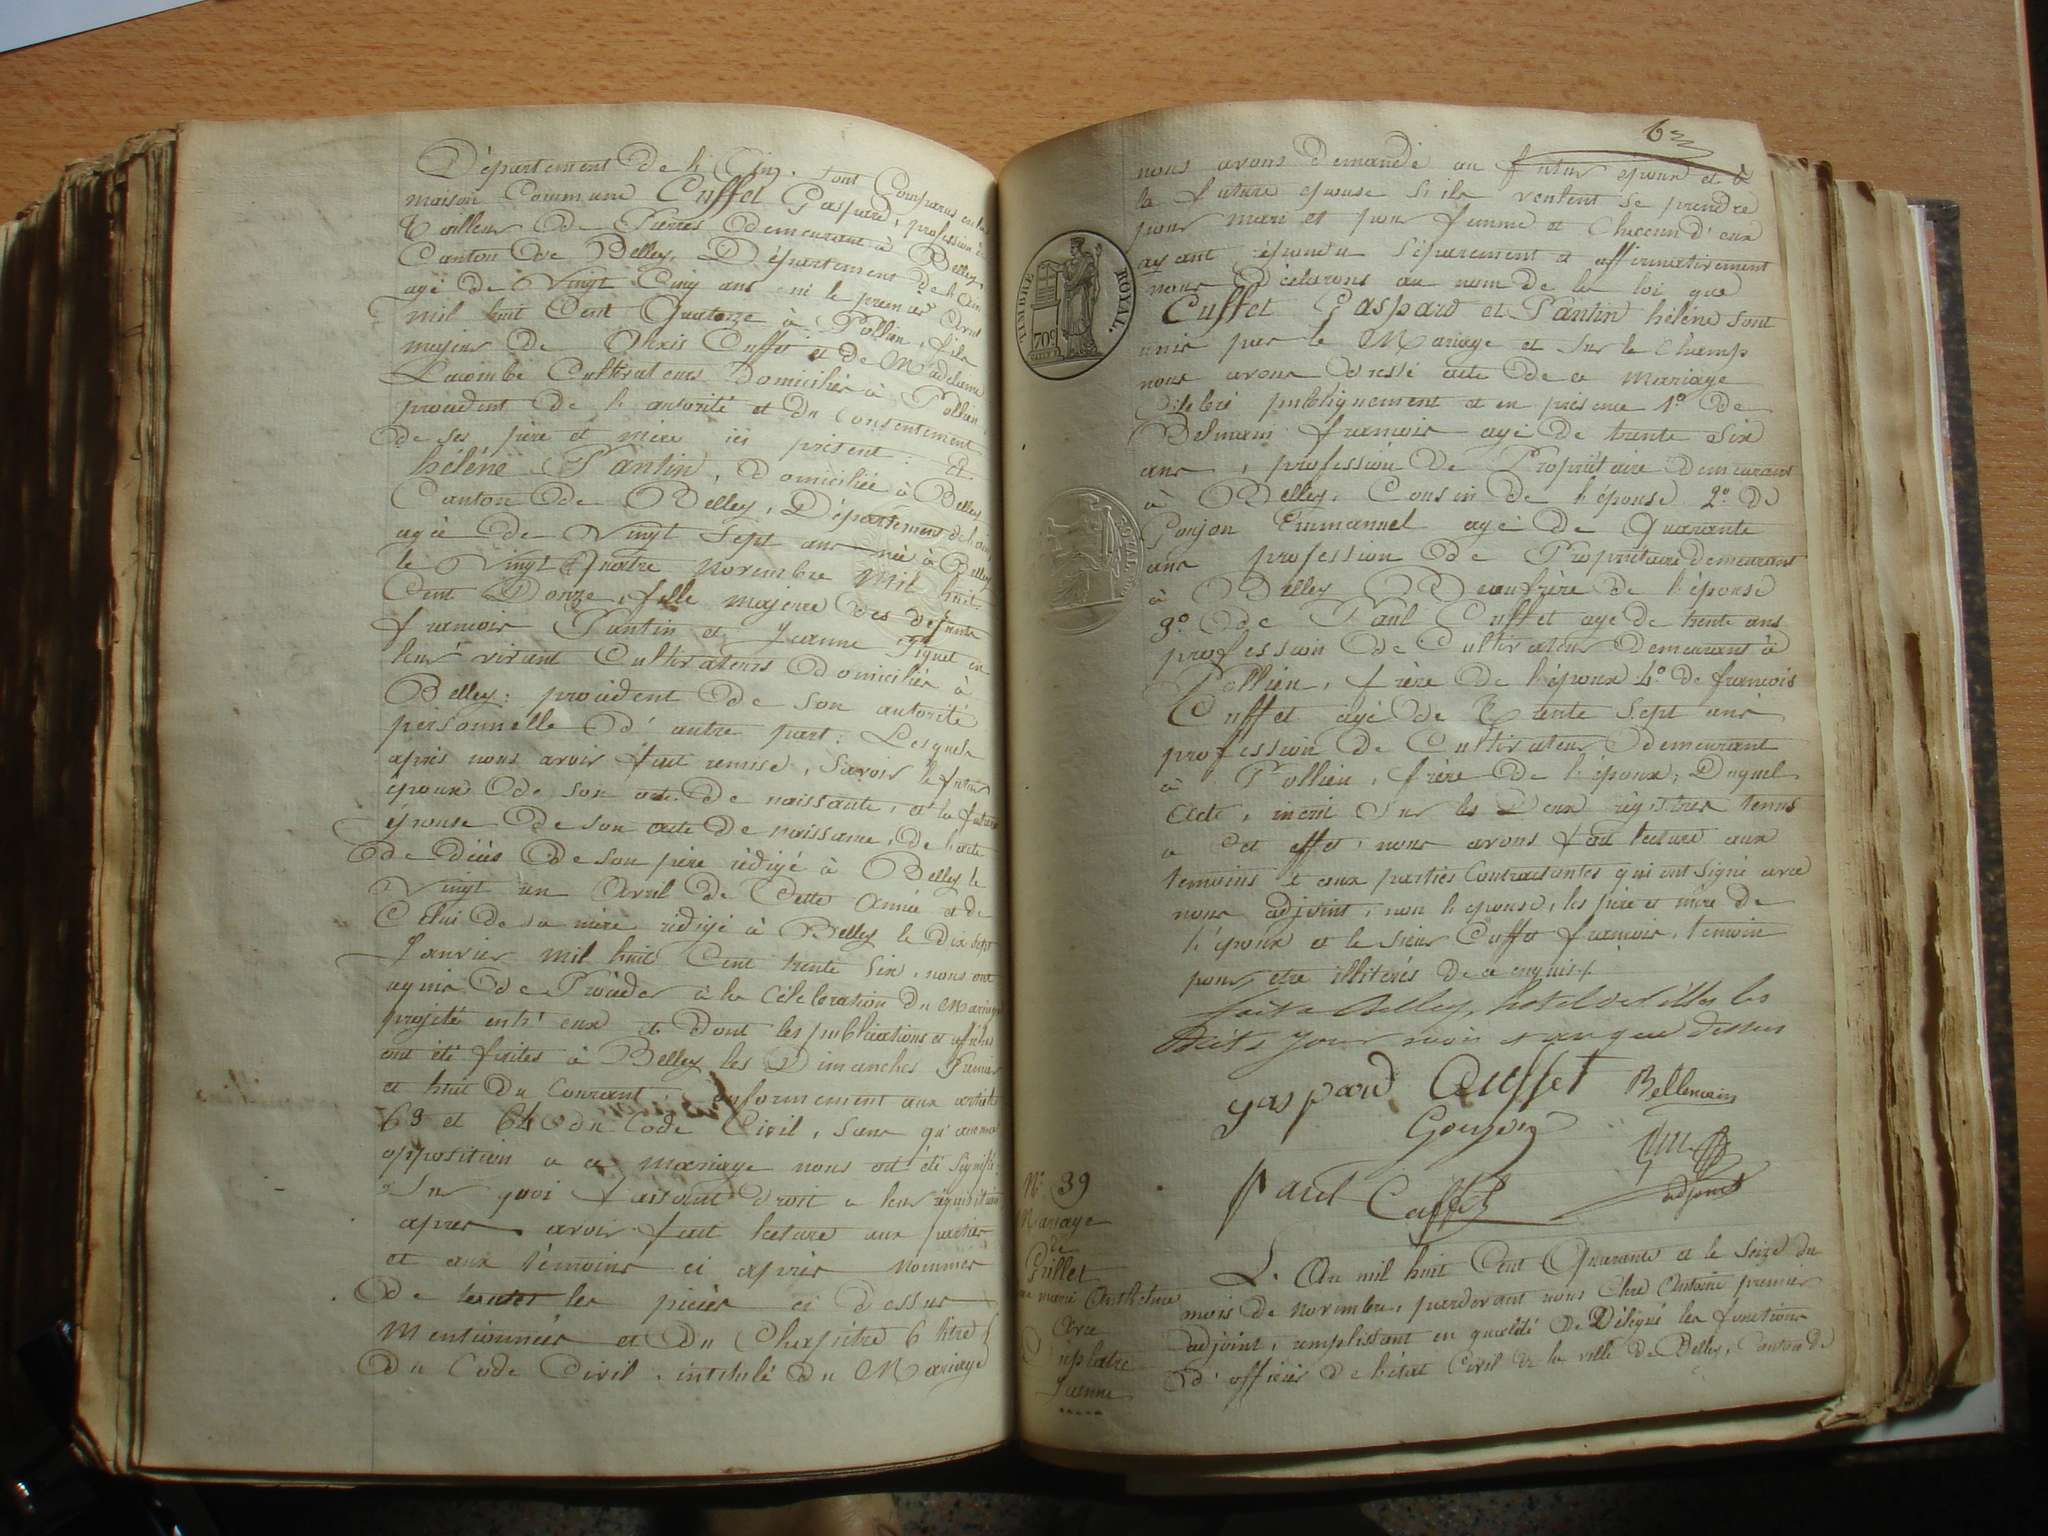 Département de l'Ain. Sont Comparus en la
maison Commune Cuffet Gaspard, profession de
Tailleur De Pierres Demeurant à Belley,
Canton De Belley, Département de l'ain
agé de Vingt Cinq ans né le premier
mil huit Cent Quatorze à Pollieu, fils
majeur De Cuffet et de Madelaine
Lacombe Cultivateurs Domiciliés à Pollieu,
procedent De l'autorité et du Consentement
de ses père et mère ici présent. Et
héléne Pantin, domiciliée à Belley
Canton De Belley, Département de l'ain
agée de Vingt Sept ans née à Belley
le Vingt Quatre novembre mil huit
Cent Douze, fille majeure des défunts
françois Pantin et Jeanne Piquet en
leur vivant Cultivateurs Domiciliés à
Belley: procédent De son autorité
personnelle D'autre part: Lesquels
après nous avoir fait remise, Savoir le futur
époux De son acte De naissance, et la future
épouse De son acte De naissance, De l'acte
De décès De son père rédigé à Belley le
Vingt un Avril de Cette Année et de
Celui de sa mère rédigé à Belley le Dix sept
Janvier mil huit Cent trente Six, nous ont
requis De Procéder à la Célébration du Mariage
projeté entr'eux et Dont les publications et affiches
ont été faites à Belley les Dimanches Premier
et huit du Courant, Conformement aux articles
63 et 64 du Code Civil, Sans qu'aucune
opposition a ce mariage nous ait été signifié.
Sur quoi faisant droit a leur réquisition
apres avoir fait lecture aux parties
et aux témoins ci après nommés
De les pièces ci dessus
Mentionnées et Du Chapitre 6 titre 5
Du Code Civil, intitulé du Mariage
nous avons demandé au futur époux et à
la future épouse S'ils veulent se prendre
pour mari et pour femme et Chacun d'eux
ayant répondu Séparement et affirmativement
nous Déclarons au nom De la loi que
Cuffet Gaspard et Pantin héléne sont
unis par le Mariage et Sur le Champ
nous avons Dressé acte De ce mariage
Célebré publiquement et en présence 1º. De
Belmain françois agé De trente Six
ans, profession De Propriétaire demeurant
à Belley, Cousin De l'épouse 2º. De
Goujon Emmanuel agé De Quarante
ans profession De Propriétaire demeurant
à Belley Beaufrère De l'épouse
3º. De Paul Cuffet agé De trente ans
profession De Cultivateur Demeurant à
Pollieu, frère De l'époux 4º. De françois
Cuffet agé De Trente Sept ans
profession De Cultivateur Demeurant
à Pollieu, frère De l'époux, Duquel
Acte, inscrit Sur les Deux régistres tenus
a Cet effet, nous avons fait lecture aux
temoins et aux parties Contractantes qui ont signé avec
nous adjoint, non l'épouse, les père et mère de
l'époux et le sieur Cuffet françois, temoin
pour être illitérés de ce enquis.
fait a Belley, hotel de ville les
Dits Jour mois et an que dessus
gaspard Cuffet Bellemain
Goujon
Paul Cuffet adjoint
TIMBRE ROYAL.
70c
Nº. 39
Mariage
de
Grillet
marie Anthelme
Avec
Jeanne
L'An mil huit Cent Quarante et le Seize du
mois de novembre, pardevant nous Antoine premier
adjoint, remplissant en qualité De Délégué les fonctions
D'officier De l'état Civil de la ville De Belley, Canton de